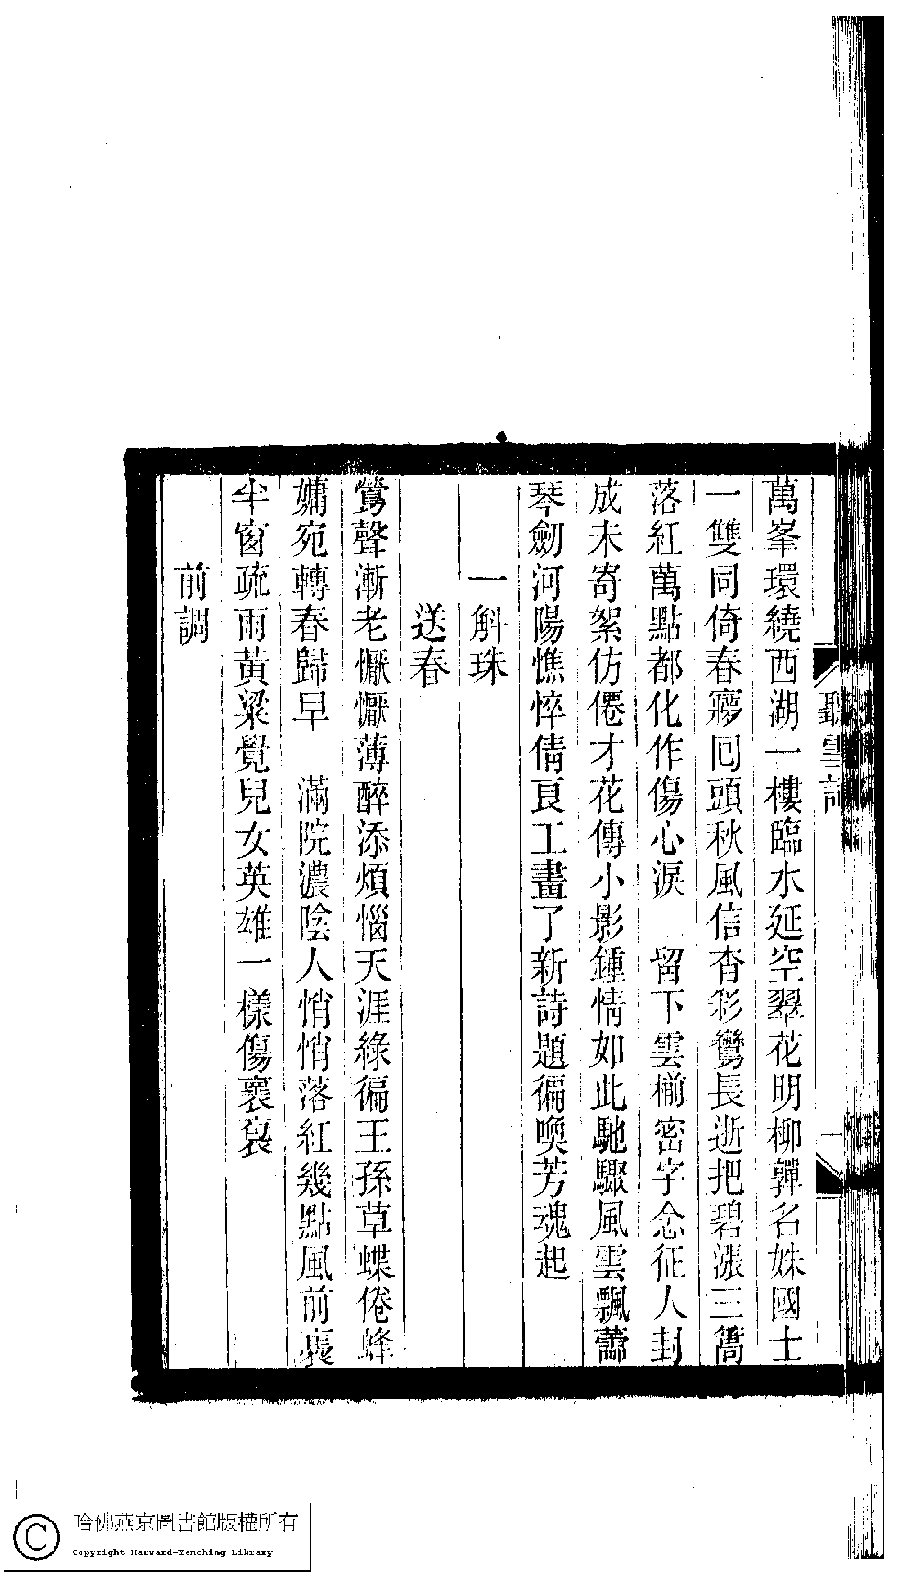 萬峯環繞西湖一樓臨水延空翠花明柳嚲名姝國士
一雙同倚春夢囘頭秋風信杳彩鸞長逝把碧漲三篙
落紅萬點都化作傷心淚　留下雲槲密字念征人封
成未寄絮仿僊才花傳小影鍾情如此馳驟風雲飄蕭
琴劒河陽憔悴倩良工畫了新詩題徧喚芳魂起
一斛珠
送春
鶯聲漸老懨懨薄醉添煩惱天涯綠徧王孫草蝶倦蜂
慵宛轉春歸早　滿院濃陰人悄悄落紅幾點風前裊
半窗疏雨黃粱覺兒女英雄一樣傷襄裊
前調
聽雲詞
哈佛燕京圖書館版權所有
Copyright Harvard-Yenching Library